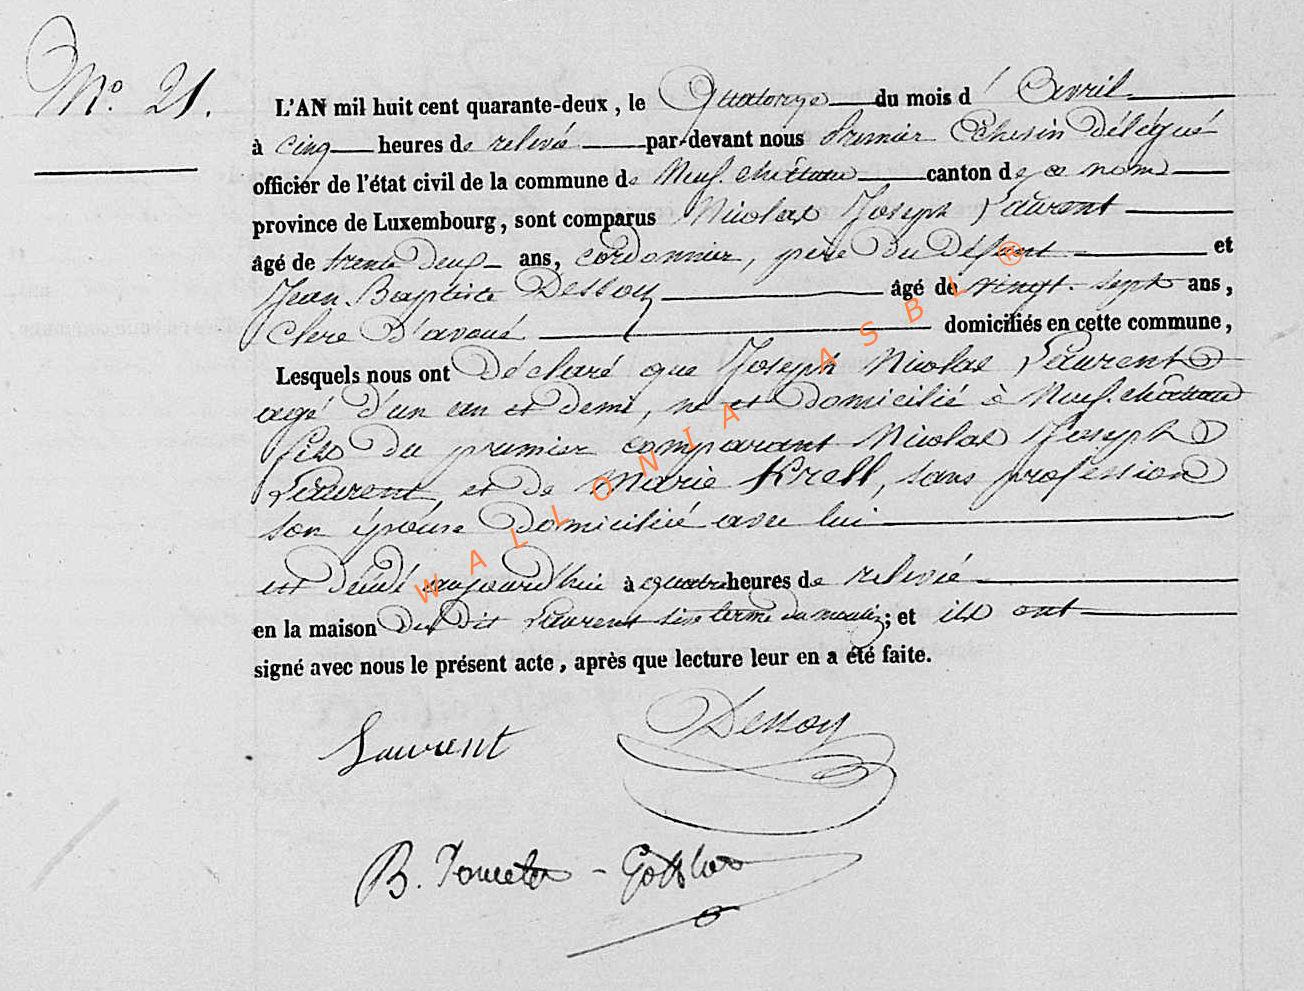 N.o 21.
L'AN mil huit cent quarante-deux, le Quatorze du mois d' Avril
à cinq heures de relevée par-devant nous Premier Echevin Délégué
officier de l'état civil de la commune de Neufchâteau canton de ce nom
province de Luxembourg, sont comparus Nicolas Joseph Laurent
âgé de trente deux ans, cordonnier, père du Défunt et
Jean Baptiste Dessoy âgé de vingt-sept ans,
Clerc d'avoué domiciliés en cette commune,
Lesquels nous ont Déclaré que Joseph Nicolas Laurent
agé d'un an et demi, né et domicilié à Neufchâteau
fils du premier comparant Nicolas Joseph
Laurent, et de Marie Krell, sans profession
son épouse domiciliée avec lui
est décédé aujourd'hui à quatre heures de relevée
en la maison du dit Laurent sise du moulin; et ils ont
signé avec nous le présent acte, après que lecture leur en a été faite.
Laurent Dessoy
B.
WALLONIA ASBL ®